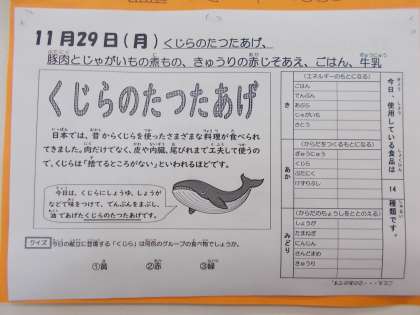 11月29日(月) くじらのたつたあげ、
豚肉とじゃがいもの煮もの、きゅうりの赤じそあえ、ごはん、牛乳
くじらのたつたあげ
日本では、昔からくじらを使ったさまざまな料理が食べられ
てきました。肉だけでなく、皮や内臓、尾びれまで工夫して使うの
で、くじらは「捨てるところがない」といわれるほどです。
今日は、くじらにしょうゆ、しょうが
などで味をつけて、でんぷんをまぶし、
油であげたくじらのたつたあげです。
クイズ 今日の献立に登場する「くじら」は何色のグループの食べ物でしょうか。
①黄 ②赤 ③緑
今日、使用している食品は
14
種類です。
き
(エネルギーのもとになる)
ごはん
でんぷん
あぶら
じゃがいも
さとう
あか
(からだをつくるもとになる)
ぎゅうにゅう
くじら
ぶたにく
けずりぶし
みどり
(からだのちょうしをととのえる)
しょうが
たまねぎ
にんじん
さんどまめ
きゅうり